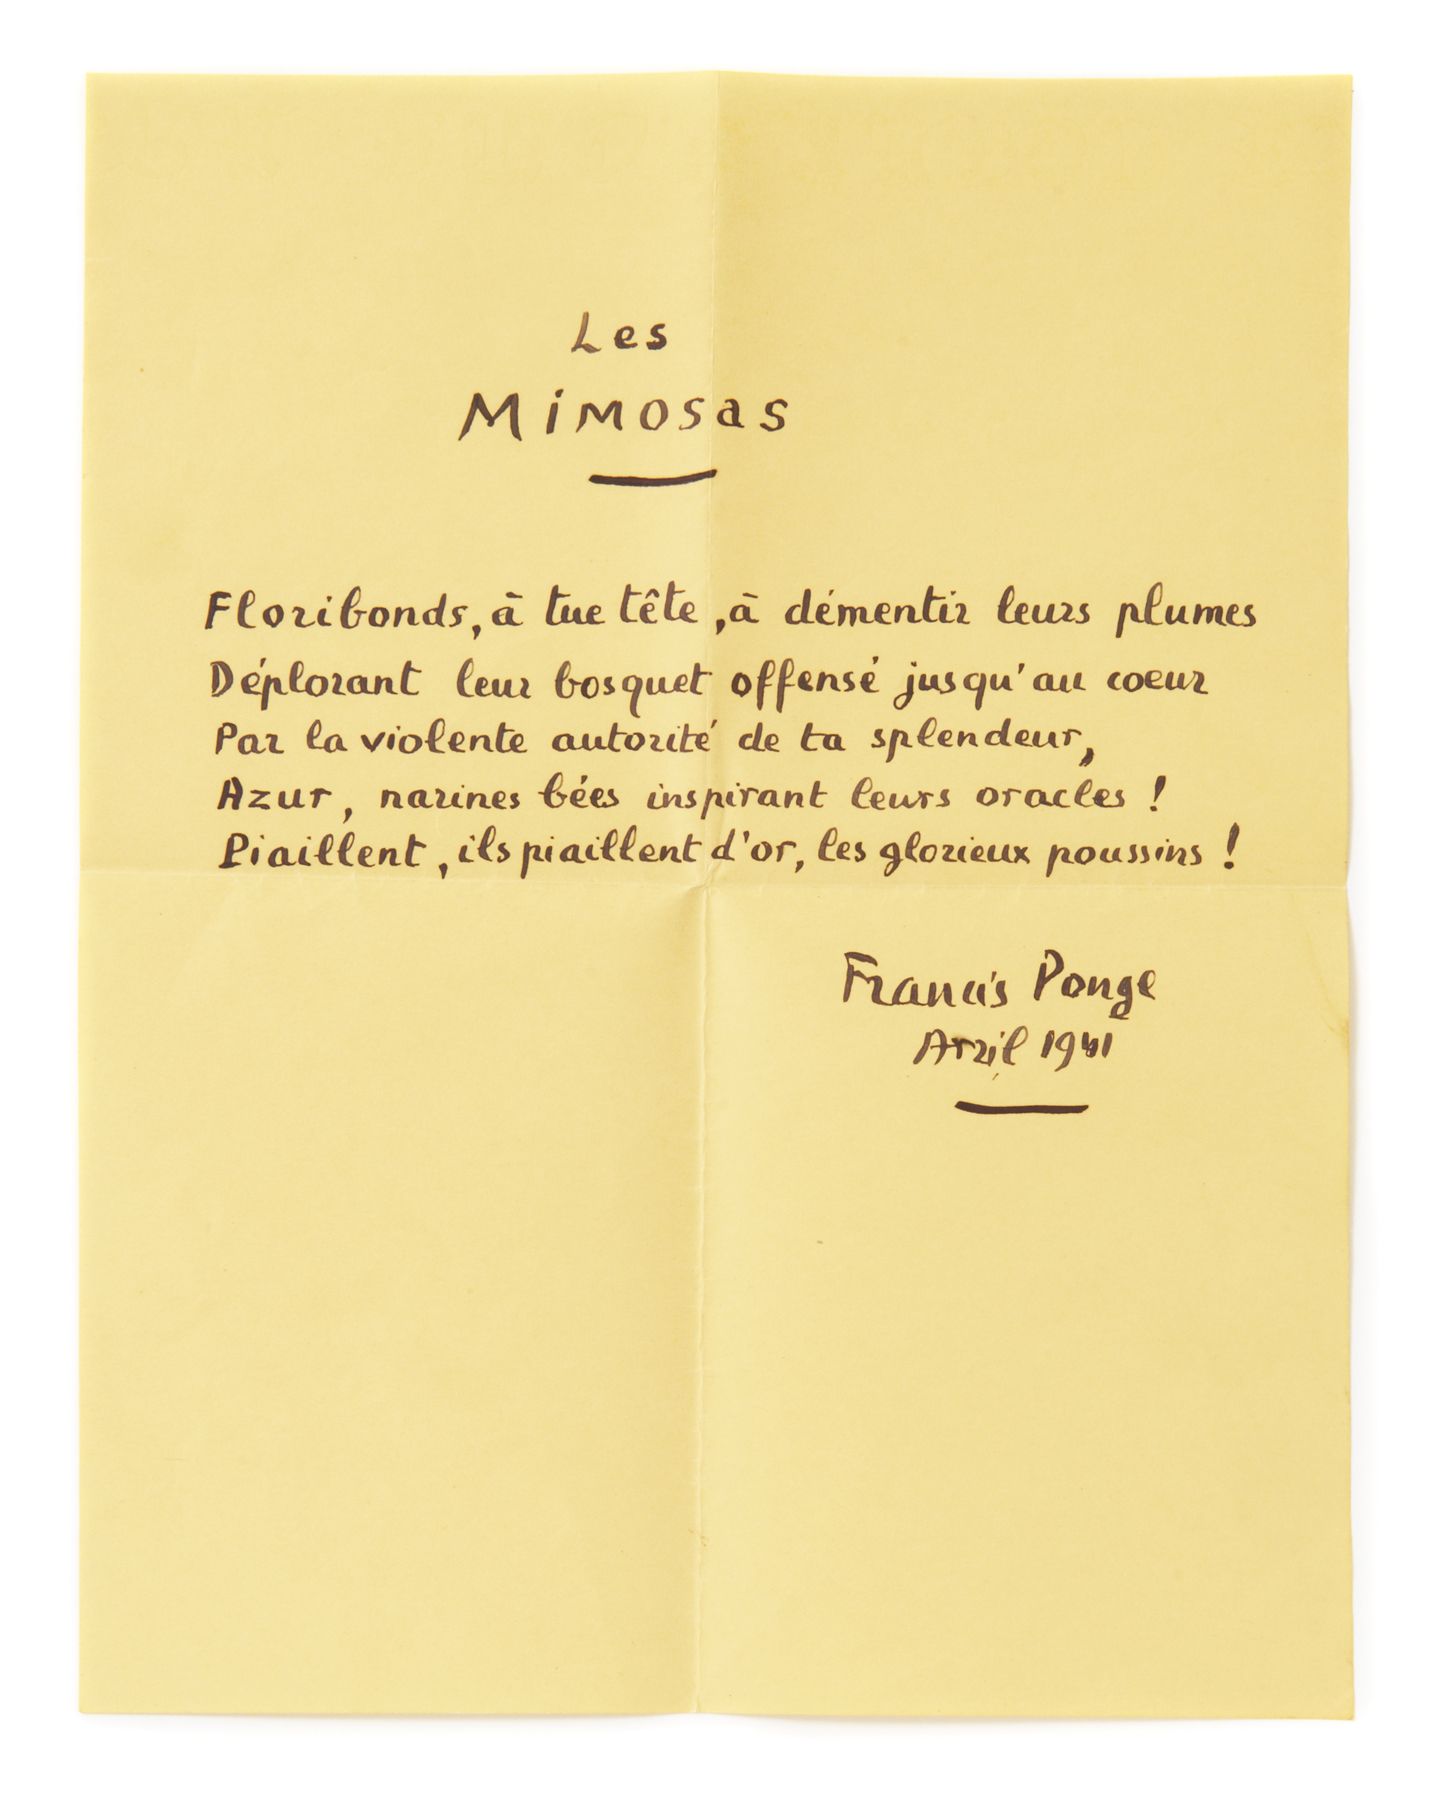 Les
Mimosas
Floribonds, à tue tête, à démentir leurs plumes
Déplorant leur bosquet offensé jusqu'au coeur
Par la violente autorité de ta splendeur,
Azur, narines bées inspirant leurs oracles !
Piaillent, ils piaillent d'or, les glorieux poussins !
Francis Ponge
Avril 1941